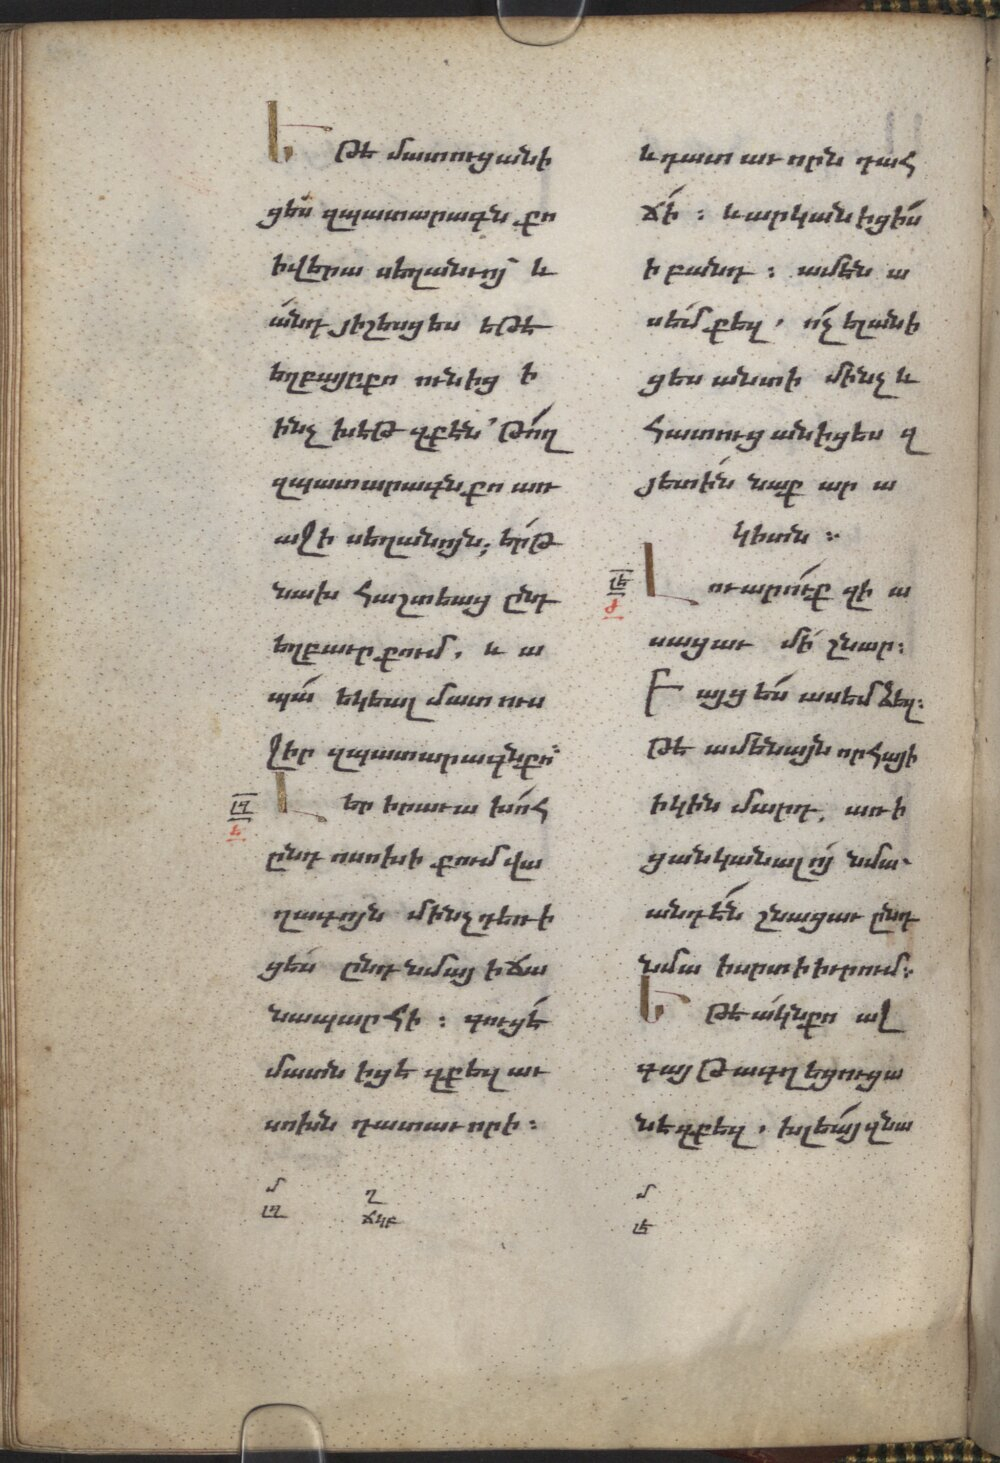 Եթե մատուցանի
ցես զպատարագն քո
ի վերա սեղանւոյ՝ և
անդ յիշեսցես եթե
եղբայրքո ունիցի
ինչ խեթ զքէն՝ թող
զպատարագն քո առ
աջի սեղանոյն; երթ
նախ հաշտեաց ընդ
եղբաւր քում, և ա
պա եկեալ մատուս
ջիր զպատարագնքո՝
Լեր իրաւա խոհ
ընդ ոսոխի քում վա
ղագոյն մինչդեռ ի
ցես ընդ նմայ ի ճա
նապարհի ։ գուցե
մատնիցե զքեզ աւ
սոխն դատաւորի ։
և դատաւորըն դահ
ճի ։ և արկանիցիս
ի բանդ ։ ամէն ա
սեմ քեզ, ոչ ելանի
ցես անտի մինչև
հատուցանիցես զ
յետին նաքարա
կիտն ։
Լուարուք զի ա
սացաւ մի շնար։
Բայց ես ասեմ ձեզ։
թե ամենայն որ հայի
ի կին մարդ, առ ի
ցանկանալոյ նմա՝
անդէն շնացաւ ընդ
նմա ի սրտի իւրում։
Եթե ակնքո աջ
գայթագղեցուցա
նե զքեզ, խլեայ զնա
լդ
ե
լե
ժ
մ
լդ
ղ
ճկբ
մ
լե